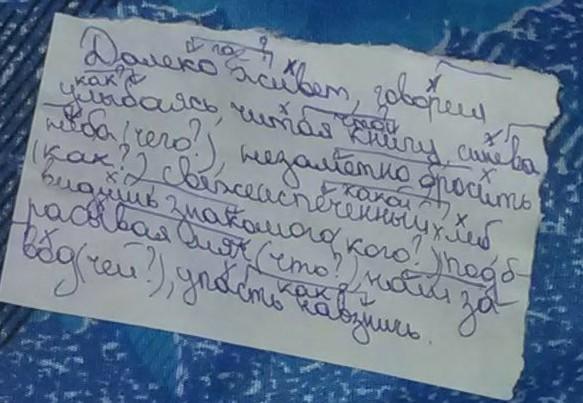 где?
Далеко живет, говорил
как?
улыбаясь, читая книгу, синева
неба (чего?), незаметно бросить
(как?) свежеиспеченный хлеб
какой?
видишь знакомого (кого?) подб-
расывая мяч (что?), наш за-
как?
вод (чей?), упасть навзничь.